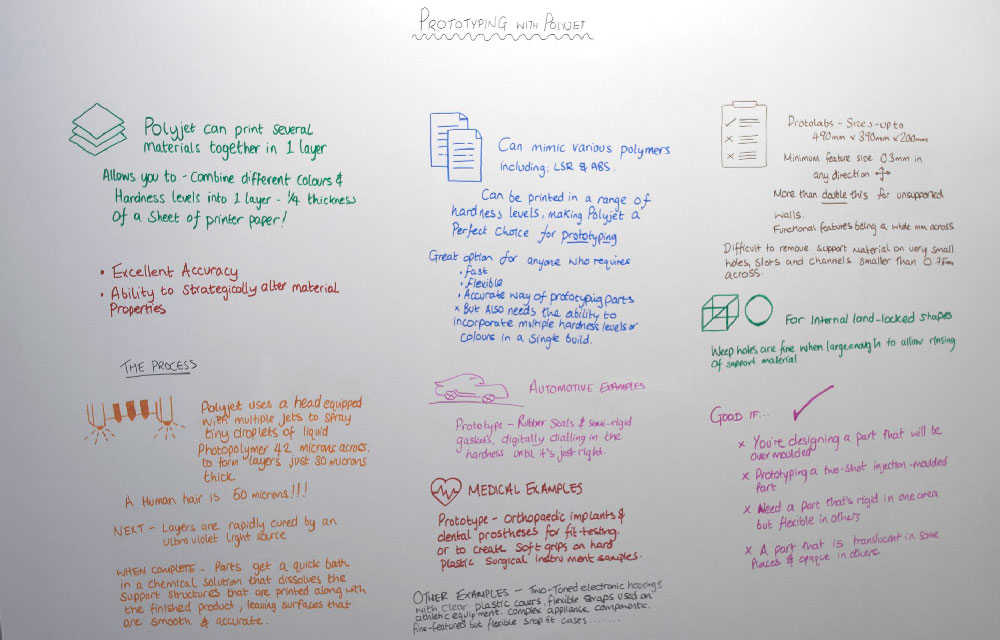 PROTOTYPING WITH POLYJET
Polyjet can print several
materials together in 1 layer
Allows you to - Combine different colours &
Hardness levels into 1 layer - 1/4 thickness
Of a sheet of printer paper!
• Excellent Accuracy
• Ability to Strategically alter material
Properties
THE PROCESS
Polyjet uses a head equipped
with multiple jets to spray
tiny droplets of liquid
Photopolymer 42 microns across.
to form layers just 30 microns
thick
A Human hair is 50 microns!!!
NEXT - Layers are rapidly cured by an
ultraviolet light source
WHEN COMPLETE - Parts get a quick bath
in a chemical solution that dissolves the
support structures that are printed along with
the finished product, leaving surfaces that
are smooth & accurate.
Can mimic various polymers
including; LSR & ABS.
Can be printed in a range of
hardness levels, making Polyjet a
Perfect Choice for prototyping
Great option for anyone who requires
• Fast
• Flexible
• Accurate way of prototyping parts
x But Also needs the ability to
incorporate multiple hardness levels or
colours in a single build.
AUTOMOTIVE EXAMPLES
Prototype - Rubber Seals & semi-rigid
gaskets, digitally dialling in the
hardness until it's just right.
MEDICAL EXAMPLES
Prototype - Orthopaedic implants &
dental prostheses for fit-testing.
or to create soft grips on hard
plastic surgical instrument samples.
OTHER EXAMPLES - Two-Toned electronic housings
with clear plastic covers, flexible straps used on
athletic equipment. complex appliance components.
fine-featured but flexible snap fit cases.......
Protolabs - Sizes - up to
490mm x 390mm x 200mm
Minimum feature size 0.3mm in
any direction
More than double this for unsupported
walls.
Functional features being a whole mm across
Difficult to remove support material on very small
holes, slots and channels smaller than 0.75mm
across.
For Internal land-locked shapes
Weep holes are fine when large enough to allow rinsing
of support material
GOOD IF...
x You're designing a part that will be
over moulded
x Prototyping a two-shot injection-moulded
Part
x Need a part that's rigid in one area
but flexible in others
x A part that is translucent in some
places & opaque in others